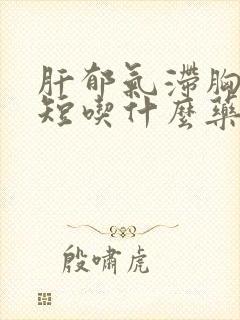 肝郁氣滯胸
短喫什麼藥
殷嘯虎